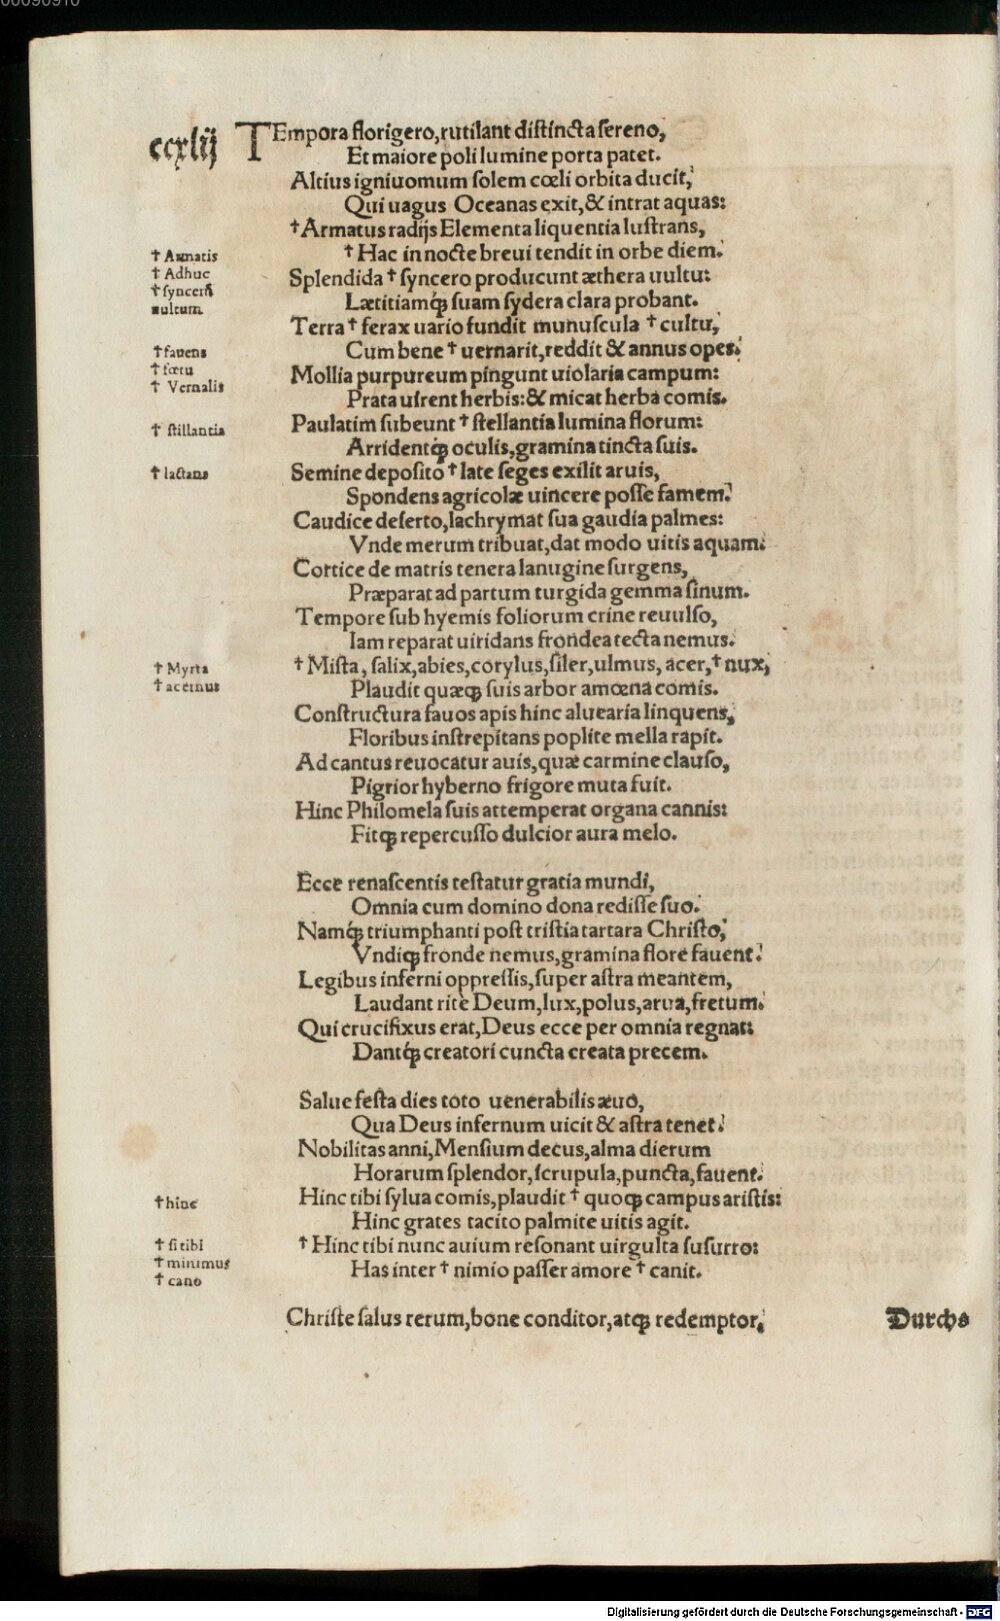 00090910
ccxlij
TEmpora florigero, rutilant distincta sereno,
Et maiore poli lumine porta patet.
Altius igniuomum solem cœli orbita ducit,
Qui uagus Oceanas exit, & intrat aquas:
†Armatus radijs Elementa liquentia lustrans,
†Hac in nocte breui tendit in orbe diem.
Splendida †syncero producunt æthera uultu:
Lætitiamq́; suam sydera clara probant.
Terra †ferax uario fundit munuscula †cultu,
Cum bene †uernarit, reddit & annus opes.
Mollia purpureum pingunt uiolaria campum:
Prata uirent herbis: & micat herba comis.
Paulatim subeunt †stellantia lumina florum:
Arridentq́; oculis, gramina tincta suis.
Semine deposito †late seges exilit aruis,
Spondens agricolæ uincere posse famem.
Caudice deserto, lachrymat sua gaudia palmes:
Vnde merum tribuat, dat modo uitis aquam.
Cortice de matris tenera lanugine surgens,
Præparat ad partum turgida gemma sinum.
Tempore sub hyemis foliorum crine reuulso,
Iam reparat uiridans frondea tecta nemus.
†Mista, salix, abies, corylus, siler, ulmus, acer, †nux,
Plaudit quæq; suis arbor amœna comis.
Constructura fauos apis hinc aluearia linquens,
Floribus instrepitans poplite mella rapit.
Ad cantus reuocatur auis, quæ carmine clauso,
Pigrior hyberno frigore muta fuit.
Hinc Philomela suis attemperat organa cannis:
Fitq; repercusso dulcior aura melo.
Ecce renascentis testatur gratia mundi,
Omnia cum domino dona redisse suo.
Namq́; triumphanti post tristia tartara Christo,
Vndiq; fronde nemus, gramina flore fauent.
Legibus inferni oppressis, super astra meantem,
Laudant rite Deum, lux, polus, arua, fretum.
Qui crucifixus erat, Deus ecce per omnia regnat:
Dantq́; creatori cuncta creata precem.
Salue festa dies toto uenerabilis æuo,
Qua Deus infernum uicit & astra tenet.
Nobilitas anni, Mensium decus, alma dierum
Horarum splendor, scrupula, puncta, fauent.
Hinc tibi sylua comis, plaudit †quoq; campus aristis:
Hinc grates tacito palmite uitis agit.
†Hinc tibi nunc auium resonant uirgulta susurro:
Has inter †nimio passer amore †canit.
Christe salus rerum, bone conditor, atq; redemptor,
Durchs
†Armatis
†Adhuc
†syncerū
uultum
†fauens
†fœtu
†Vernalis
†stillantia
†lactans
†Myrta
†acernus
†hinc
†si tibi
†minimus
†cano
Digitalisierung gefördert durch die Deutsche Forschungsgemeinschaft - DFG